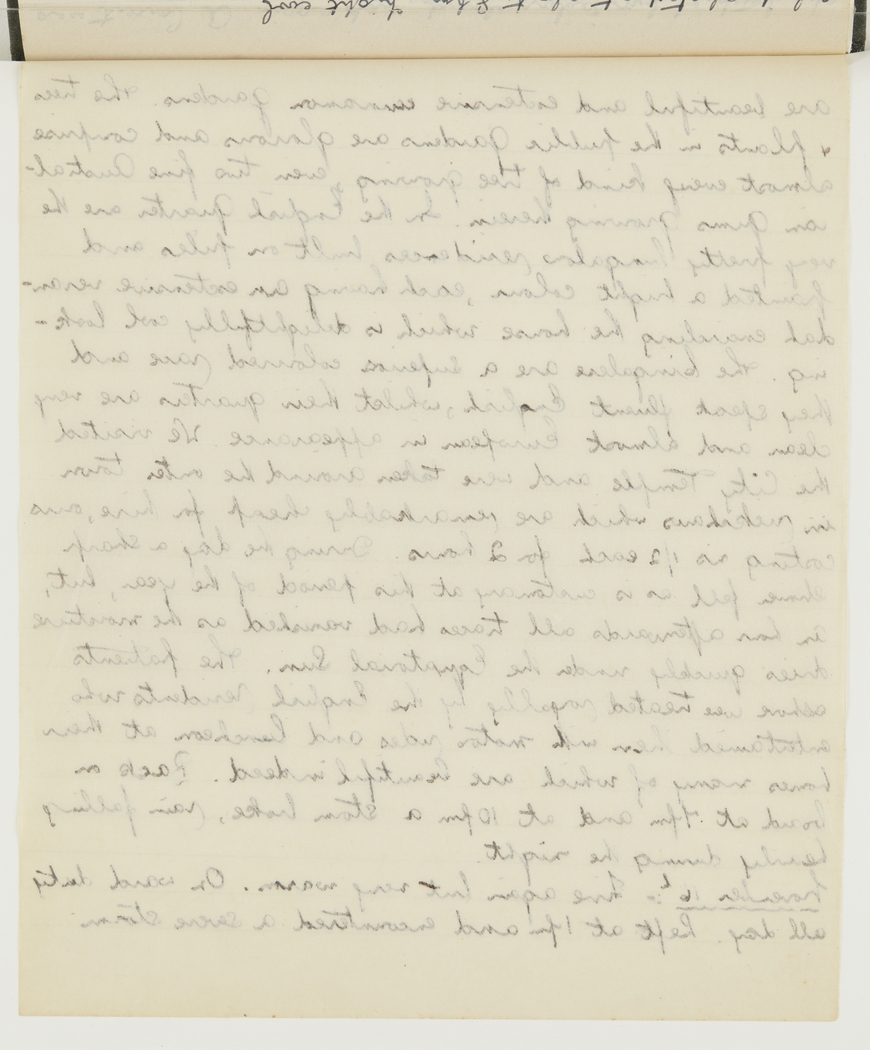 are beautiful and extensive cinnamon gardens. The trees
& plants in the public gardens are glorious and comprise
almost every kind of tree growing, even two fine Austral-
ian gums growing therein. In the English quarter are the
very pretty bungalow residences built on piles and
painted a bright colour, each having an extensive veran-
dah encircling the house which is delightfully cool look-
ing. The Singalese are a superior coloured race and
they speak fluent English, whilst their quarters are very
clean and almost European in appearance. We visited
the City Temple and were taken around the outer town
in rickshaws which are remarkably cheap for hire, ours
costing us 1/2 each for 2 hours. During the day a sharp
shower fell as is customary at this period of the year, but,
an hour afterwards all traces had vanished as the moisture
dries quickly under the Equatorial Sun. The patients
ashore were treated royally by the English residents who
entertained them with motor rides and luncheon at their
homes many of which are beautiful indeed. Back on
board at 7pm and at 10 pm a storm broke, rain falling
heavily during the night.
November 16th:- Fine again but very warm. On ward duty
all day. Left at 1 pm and encountered a severe storm